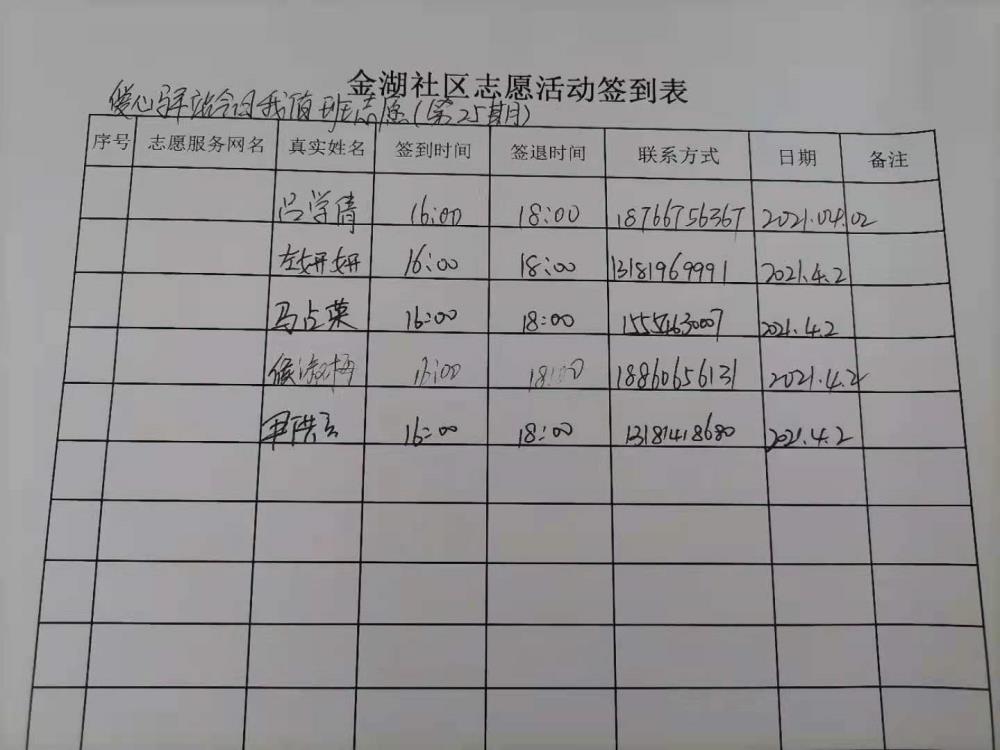 金湖社区志愿活动签到表
爱心驿站今日我值班志愿(第25期)
序号 志愿服务网名 真实姓名 签到时间 签退时间 联系方式 日期 备注
吕学倩 16:00 18:00 18766756367 2021.04.02
左妍妍 16:00 18:00 13181969991 2021.4.2
马占荣 16:00 18:00 15554630007 2021.4.2
侯淑梅 16:00 18:00 18860656131 2021.4.2
尹洪 16:00 18:00 13181418680 2021.4.2